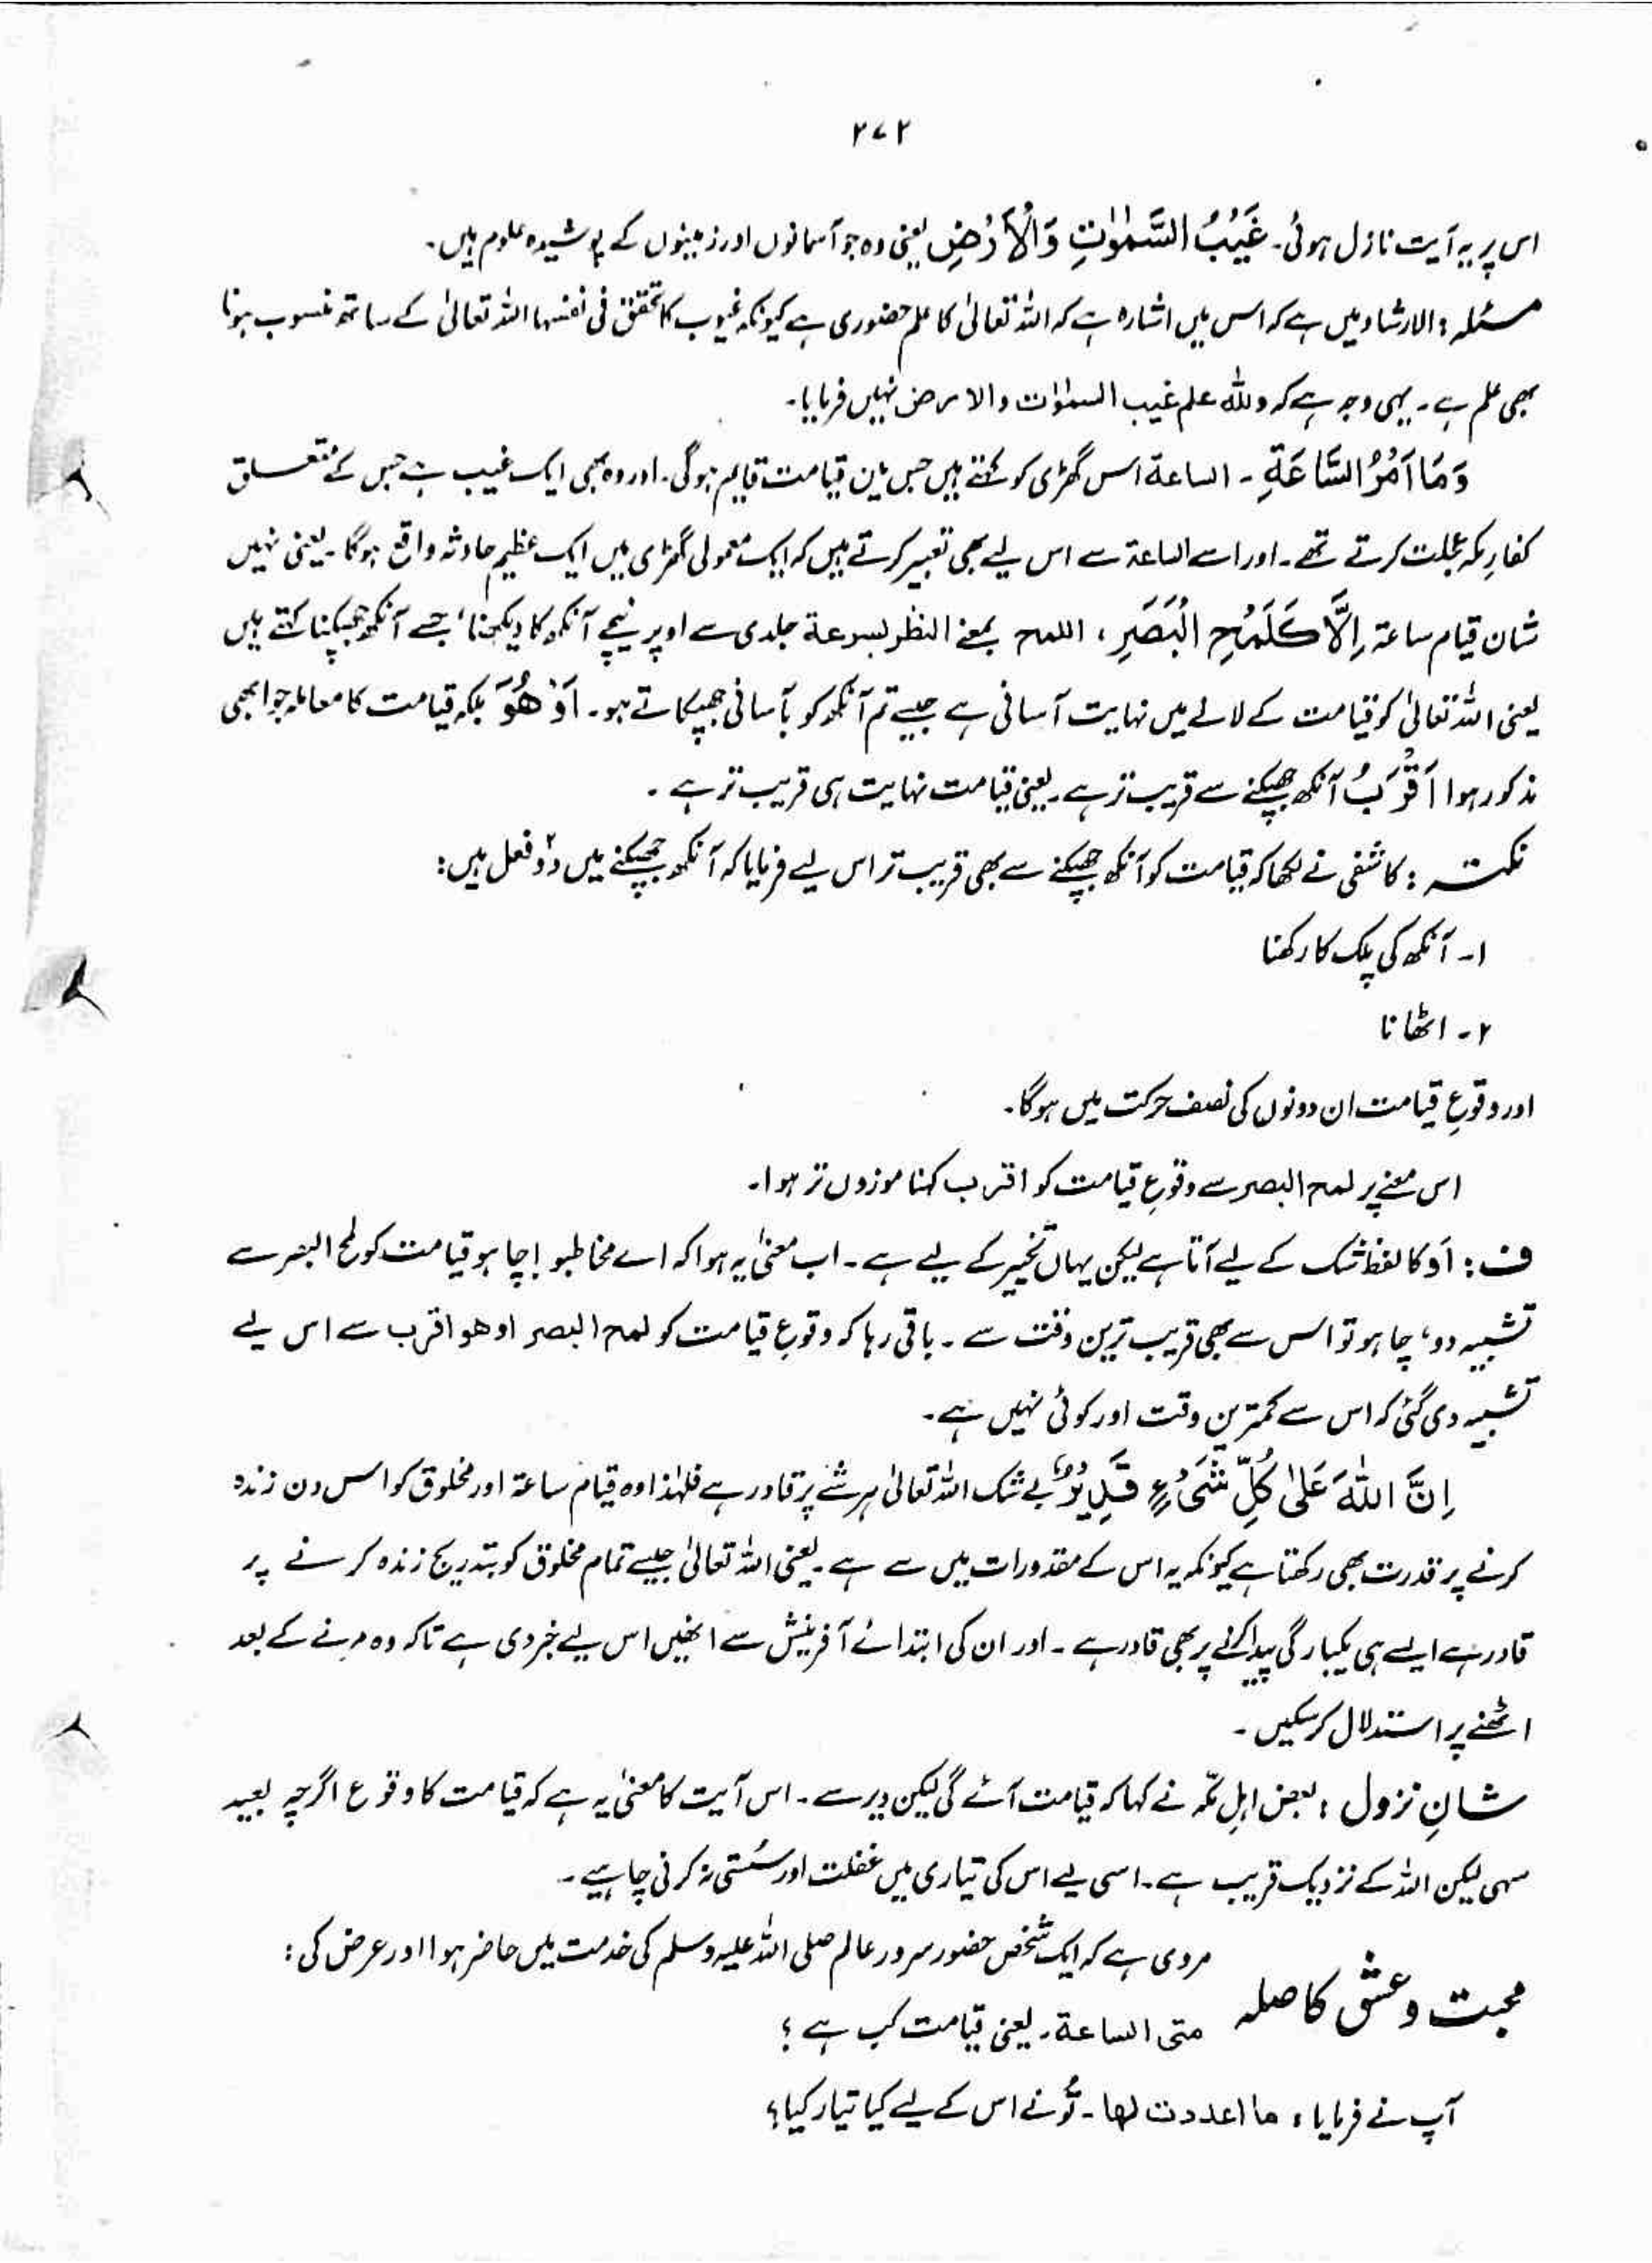 ۲۷۲
اس پر یہ آیت نازل ہوئی۔ غَیْبُ السَّمٰوٰتِ وَالْاَرْضِ یعنی وہ جو آسمانوں اور زمینوں کے پوشیدہ علوم ہیں۔
مسئلہ : الارشاد میں ہے کہ اس میں اشارہ ہے کہ اللہ تعالیٰ کا علم حضوری ہے کیونکہ غیوب کا تحقق فی نفسہا اللہ تعالیٰ کے ساتھ منسوب ہونا
بھی علم ہے۔ یہی وجہ ہے کہ وللہ علم غیب السمٰوٰت والارض نہیں فرمایا۔
وَمَا اَمْرُ السَّاعَۃِ ۔ الساعۃ اس گھڑی کو کہتے ہیں جس میں قیامت قایم ہوگی۔ اور وہ بھی ایک غیب ہے جس کے متعلق
کفارِ مکہ عجلت کرتے تھے۔ اور اسے الساعۃ سے اس لیے بھی تعبیر کرتے ہیں کہ ایک معمولی گھڑی میں ایک عظیم حادثہ واقع ہوگا۔ یعنی نہیں
شان قیام ساعۃ اِلَّا کَلَمْحِ الْبَصَرِ ، اللمح بمعنے النظر بسرعۃ جلدی سے اوپر نیچے آنکھ کا دیکھنا، جسے آنکھ جھپکنا کہتے ہیں
یعنی اللہ تعالیٰ کو قیامت کے لانے میں نہایت آسانی ہے جیسے تم آنکھ کو بآسانی جھپکاتے ہو۔ اَوْ ھُوَ بلکہ قیامت کا معاملہ جو ابھی
مذکور ہوا اَقْرَبُ آنکھ جھپکنے سے قریب تر ہے۔ یعنی قیامت نہایت ہی قریب تر ہے۔
نکتہ : کاشفی نے لکھا کہ قیامت کو آنکھ جھپکنے سے بھی قریب تر اس لیے فرمایا کہ آنکھ جھپکنے میں دو۲ فعل ہیں :
۱۔ آنکھ کی پلک کا رکھنا
۲۔ اٹھانا
اور وقوعِ قیامت ان دونوں کی نصف حرکت میں ہوگا۔
اس معنے پر لمح البصر سے وقوعِ قیامت کو اقرب کہنا موزوں تر ہوا۔
ف : اَو کا لفظ شک کے لیے آتا ہے لیکن یہاں تخییر کے لیے ہے۔ اب معنیٰ یہ ہوا کہ اے مخاطبو! چاہو قیامت کو لمح البصر سے
تشبیہ دو، چاہو تو اس سے بھی قریب ترین وقت سے۔ باقی رہا کہ وقوعِ قیامت کو لمح البصر او ھو اقرب سے اس لیے
تشبیہ دی گئی کہ اس سے کمترین وقت اور کوئی نہیں ہے۔
اِنَّ اللّٰہَ عَلٰی کُلِّ شَیْءٍ قَدِیْرٌ بے شک اللہ تعالیٰ ہر شے پر قادر ہے فلہٰذا وہ قیام ساعۃ اور مخلوق کو اس دن زندہ
کرنے پر قدرت بھی رکھتا ہے کیونکہ یہ اس کے مقدورات میں سے ہے۔ یعنی اللہ تعالیٰ جیسے تمام مخلوق کو بتدریج زندہ کرنے پر
قادر ہے ایسے ہی یکبارگی پیدا کرنے پر بھی قادر ہے۔ اور ان کی ابتدائے آفرینش سے انھیں اس لیے خبر دی ہے تاکہ وہ مرنے کے بعد
اٹھنے پر استدلال کر سکیں۔
شانِ نزول : بعض اہلِ مکّہ نے کہا کہ قیامت آئے گی لیکن دیر سے۔ اس آیت کا معنیٰ یہ ہے کہ قیامت کا وقوع اگرچہ بعید
سہی لیکن اللہ کے نزدیک قریب ہے۔ اسی لیے اس کی تیاری میں غفلت اور سُستی نہ کرنی چاہیے۔
محبت و عشق کا صلہ
مروی ہے کہ ایک شخص حضور سرور عالم صلی اللہ علیہ وسلم کی خدمت میں حاضر ہوا اور عرض کی :
متی الساعۃ۔ یعنی قیامت کب ہے ؟
آپ نے فرمایا : ما اعددت لھا۔ تُو نے اس کے لیے کیا تیار کیا؟